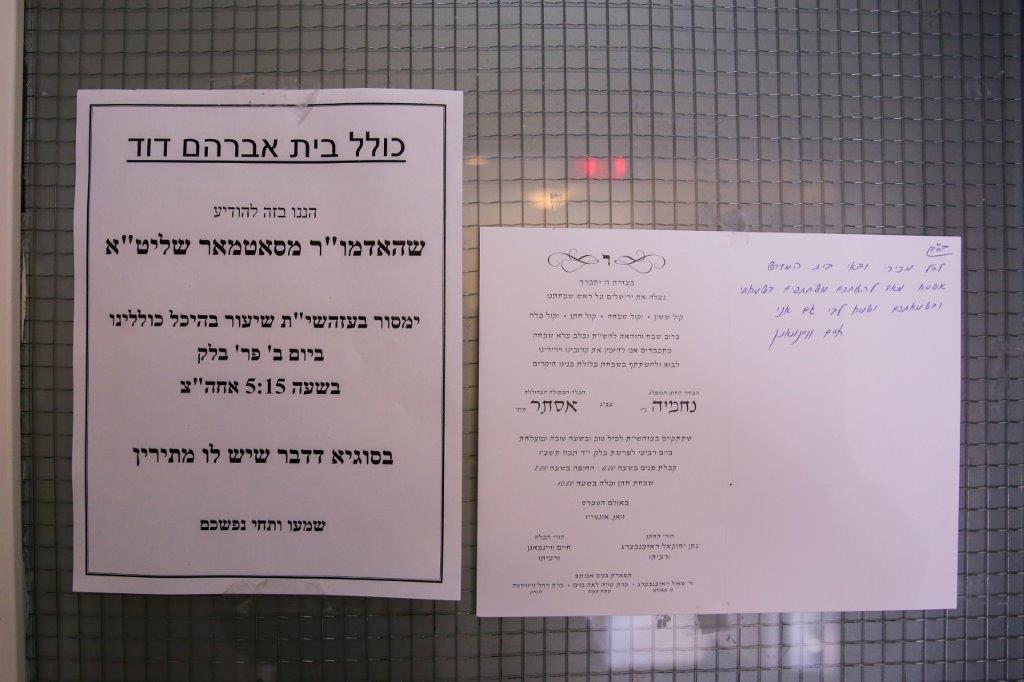 כולל בית אברהם דוד
הננו בזה להודיע
שהאדמו"ר מסאטמאר שליט"א
ימסור בעזהשי"ת שיעור בהיכל כוללינו
ביום ב' פר' בלק
בשעה 5:15 אחה"צ
בסוגיא דדבר שיש לו מתירין
שמעו ותחי נפשכם
בעזרת ה' יתברך
נעלה את ירושלים על ראש שמחתנו
קול ששון • וקול שמחה • קול חתן • וקול כלה
ברוב שבח והודאה להשי"ת ובלב מלא שמחה
מתכבדים אנו להזמין את קרובינו וידידינו
לבוא ולהשתתף בשמחת כלולת בנינו היקרים
הבחור החתן המופלג
הכלה הבתולה המהוללה
נחמיה ני"ו
עב"ג
אסתר תחי'
שתתקיים בעזהשי"ת למזל טוב ובשעה טובה ומוצלחת
ביום רביעי לפרשת בלק י"ד תמוז תשע"ז
קבלת פנים בשעה 6:00 החופה בשעה 7:00
שמחת חתן וכלה בשעה 10:00
באולם
הורי החתן
הורי הכלה
נתן יחזקאל ראזענבערג
ורעיתו
חיים
ורעיתו
תפארת בנים אבותם
ר' שאול ראזענבערג •
לכל מכירי ובאי בית המדרש
אשמח מאד לראותכם משתתפים בשמחתי
ובשמחתכם ישמח לבי גם אני
חיים